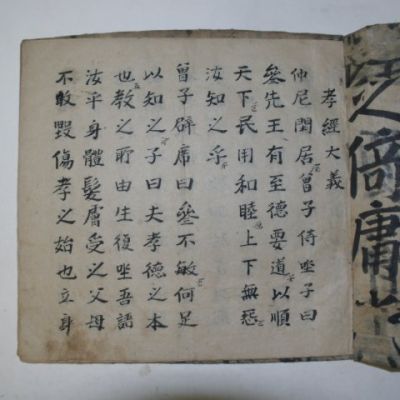 孝經大義
仲尼閒居曾子侍坐子曰
參先王有至德要道以順
天下民用和睦上下無怨
汝知之乎
曾子辟席曰參不敏何足
以知之子曰夫孝德之本
也教之所由生復坐吾語
汝乎身體髮膚受之父母
不敢毀傷孝之始也立身